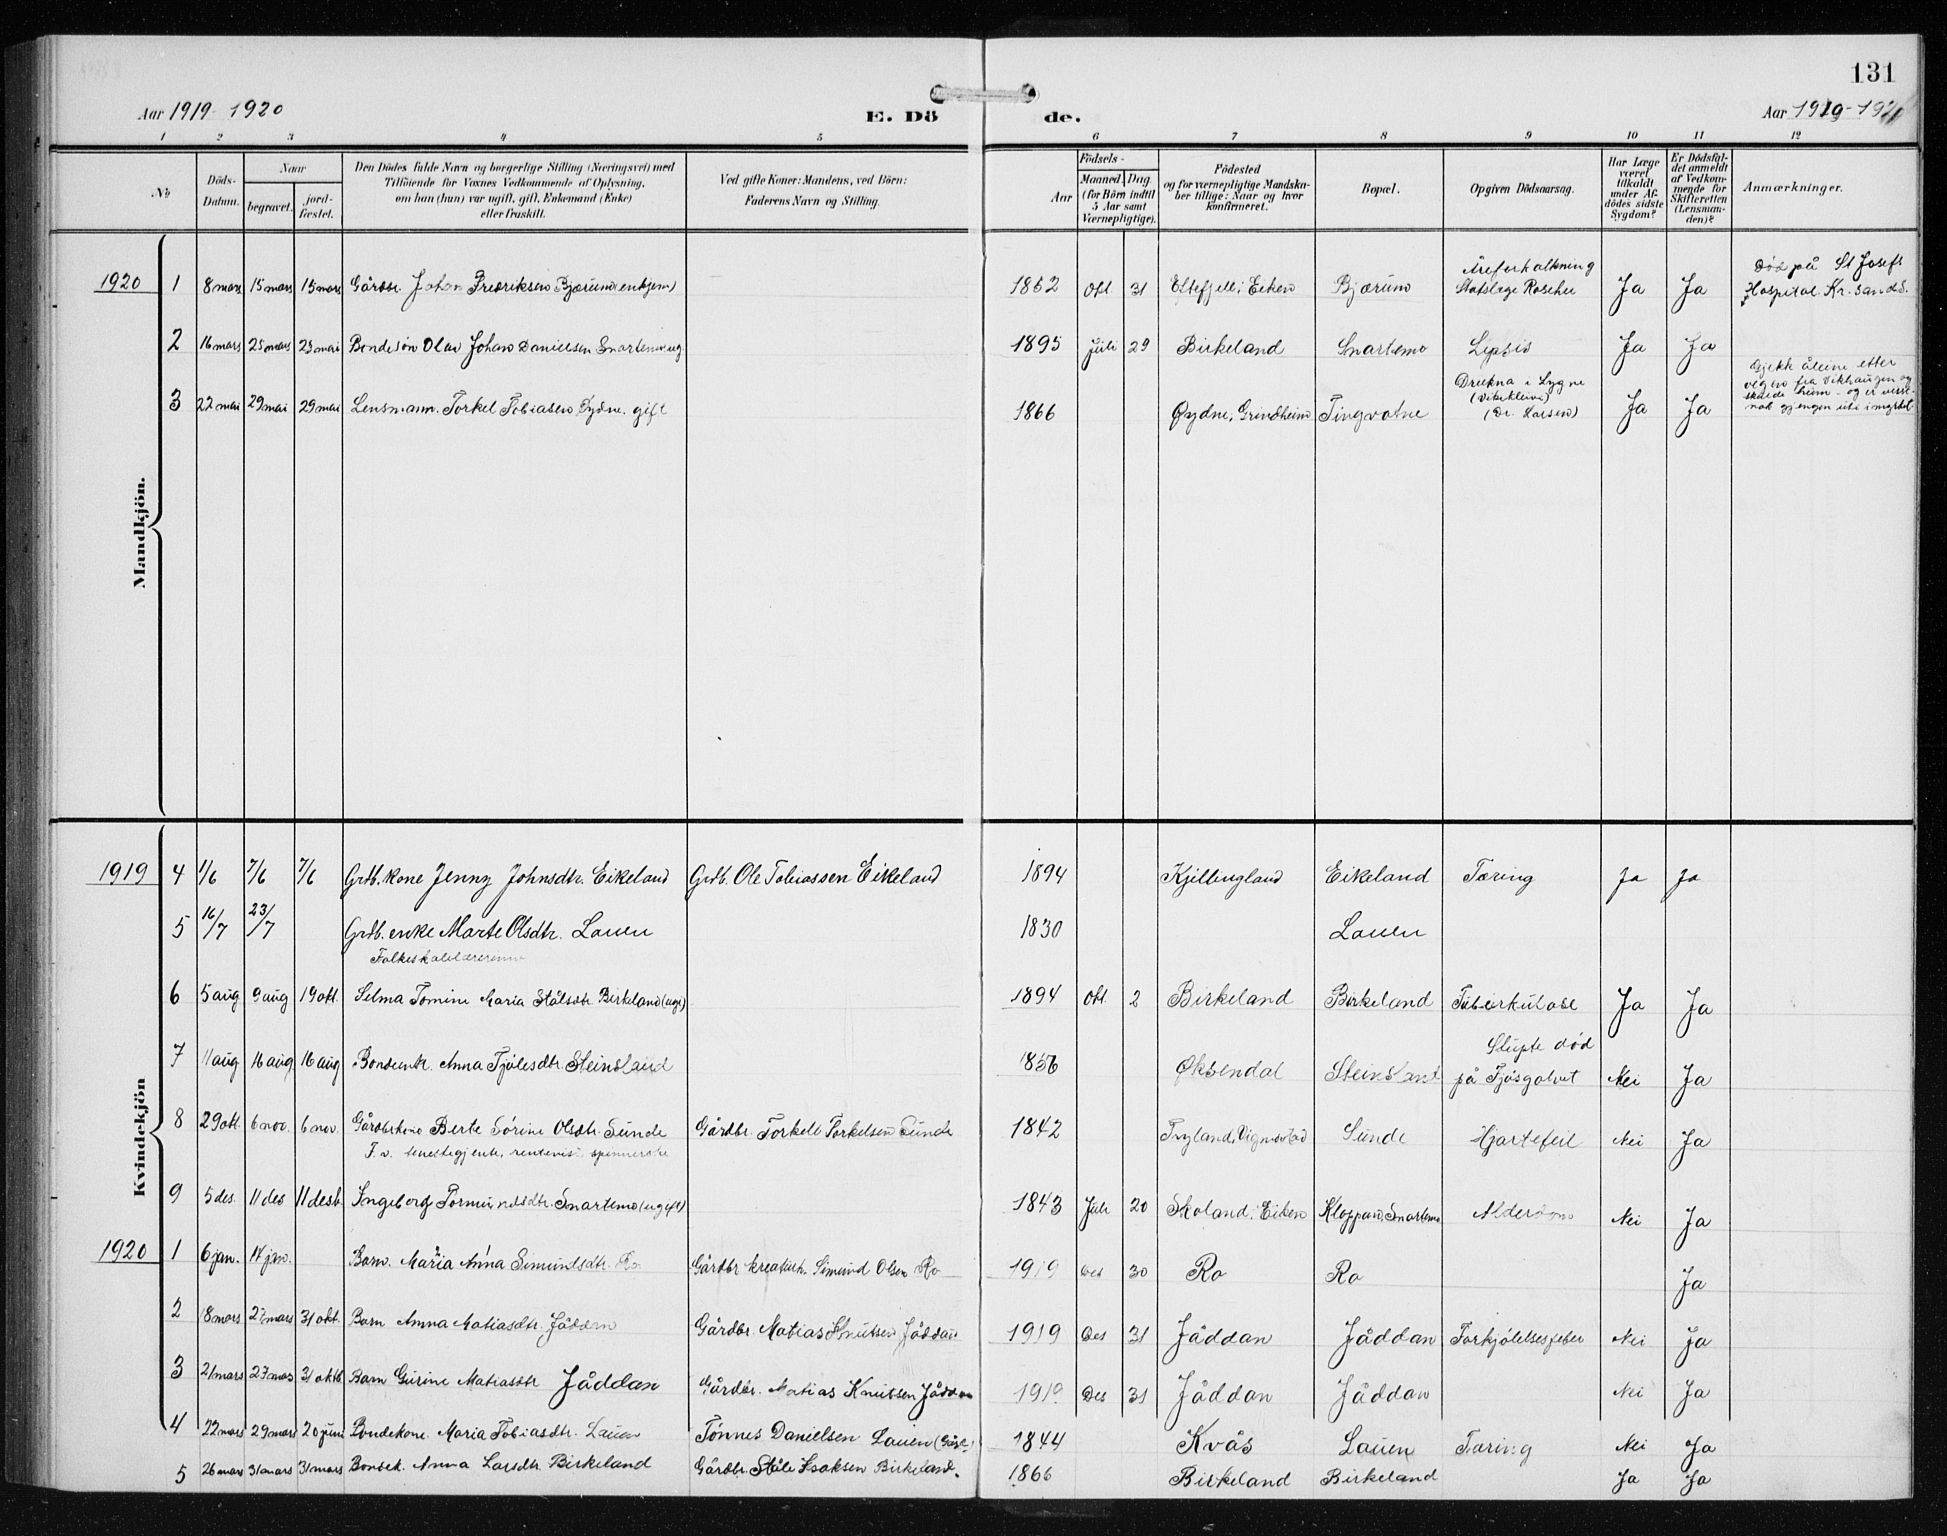 131
Aar 1919-1920
E. Dö
de.
Aar 1919-192
1 2 3 4 5 6 7 8 9 10 11 12
No
Döds-Datum.
Naar
begravet.
jord-fæstet.
Den Dödes fulde Navn og borgerlige Stilling (Næringsvei) med
Tilföiende for Voxnes Vedkommende af Oplysning,
om han (hun) var ugift, gift, Enkemand (Enke)
eller fraskilt.
Ved gifte Koner: Mandens, ved Börn:
Faderens Navn og Stilling.
Födsels-
Aar
Maaned Dag
(for Börn indtil
5 Aar samt
Værnepligtige).
Födested
og for værnepligtige Mandska-
ber tillige: Naar og hvor
konfirmeret.
Bopæl.
Opgiven Dödsaarsag.
Har Læge
været
tilkaldt
under Af-
dödes sidste
Sygdom?
Er Dödsfal-
det anmeldt
af Vedkom-
mende for
Skifteretten
(Lensman-
den)?
Anmærkninger.
Mandkjön.
1920 1 8 mars 15 mars 15 mars Gårdbr. Johan Fredriksen Bjærum (enkjem) 1862 Okt 31 Eltefjell i Eiken Bjærum Åreforkalkning Ja Ja Død på St Josefs
Hospital. Kr.sand S.
2 16 mars 25 mars 25 mai Bondesøn Olav Johan Danielsen Snartemo ug 1895 juli 29 Birkeland Snartemo Ja Ja
3 22 mai 29 mai 29 mai Lensmann. Torkel Tobiasen Øydne. gift 1866 Øydne, Grindheim Tingvatne Drukna i Lygne
(Dr. Larsen) Ja Ja Gjekk åleine etter
Kvindekjön
1919 4 1/6 7/6 7/6 Grdb. kone Jenny Johnsdtr. Eikeland Grdb. Ole Tobiassen Eikeland 1894 Kjellingland Eikeland Tæring Ja Ja
5 16/7 23/7 Grdb. enke Marte Olsdtr. Lauen 1830 Lauen
Folkeskolelærerinne
6 5 aug 9 aug 19 okt. Selma Tomine Maria Stålsdtr Birkeland (ugi) 1894 Okt. 2 Birkeland Birkeland Tuberkulose Ja Ja
7 11 aug 16 aug 16 aug Bondeenk. Anna Tjølesdtr. Steinsland 1836 Øksendal Steinsland Stupte død
på Fjøsgolvet Nei Ja
8 29 okt. 6 nov. 6 nov. Gårdbrkone Berte Sørine Olsdtr. Sunde Gårdbr. Torkell Torkelsen Sunde 1842 Tryland, Vigmostad Sunde Hjartefeil Nei Ja
9 5 des. 11 des 11 desb. Ingeborg Tormundsdtr. Snartemo (ugift) 1843 Juli 20 Skoland, Eiken Kloppan, Snartemo Alderdom Nei Ja
F. v. tenestegjente,
1920 1 6 jan. 14 jan. Barn. Maria Anna Simundsdtr. Ro Gårdbr kreaturh. Simund Olsen Ro 1919 Des 30 Ro Ro Ja
2 18 mars 27 mars 31 okt. Barn Anna Matiasdtr. Jåddan Gårdbr. Matias Knutsen Jåddan 1919 Des 31 Jåddan Jåddan Forkjølelsesfeber Nei Ja
3 21 mars 27 mars 31 oktb Barn Gurine Matiasdtr Jåddan Gårdbr. Matias Knutsen Jåddan 1919 Des 31 Jåddan Jåddan Nei Ja
4 22 mars 29 mars 20 juni Bondekone. Maria Tobiasdtr. Lauen Tønnes Danielsen Lauen 1844 Kvås Lauen Tæring Nei Ja
5 26 mars 31 mars 31 mars Bondek. Anna Larsdtr. Birkeland Gårdbr. Ståle Isaksen Birkeland. 1866 Birkeland Birkeland Ja Ja